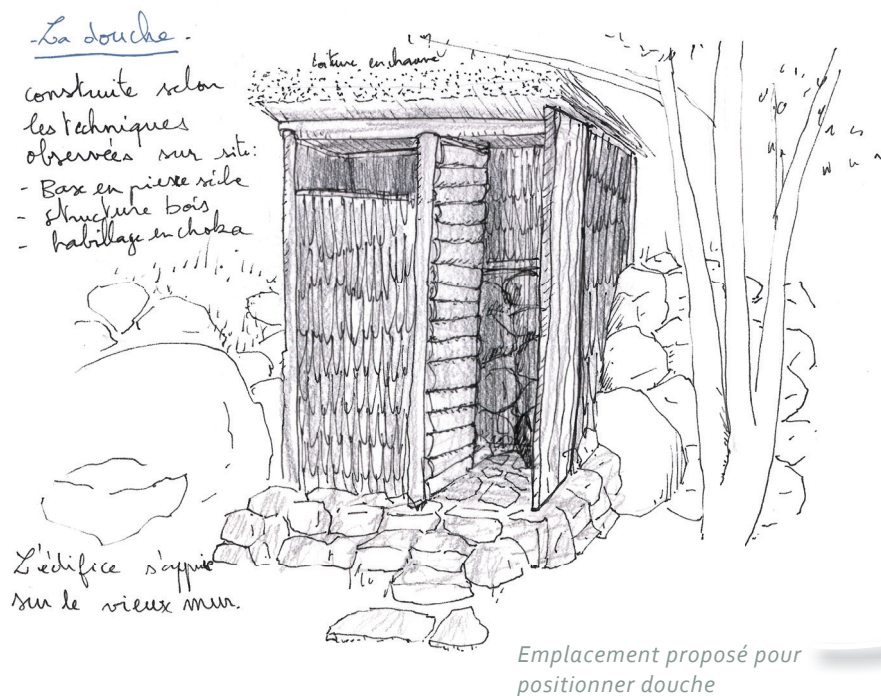 - La douche -
toiture en chaume
construite selon
les techniques
observées sur site:
- Base en pierre sèche
- structure bois
- habillage en choka
L'édifice s'appuie
sur le vieux mur.
Emplacement proposé pour
positionner douche